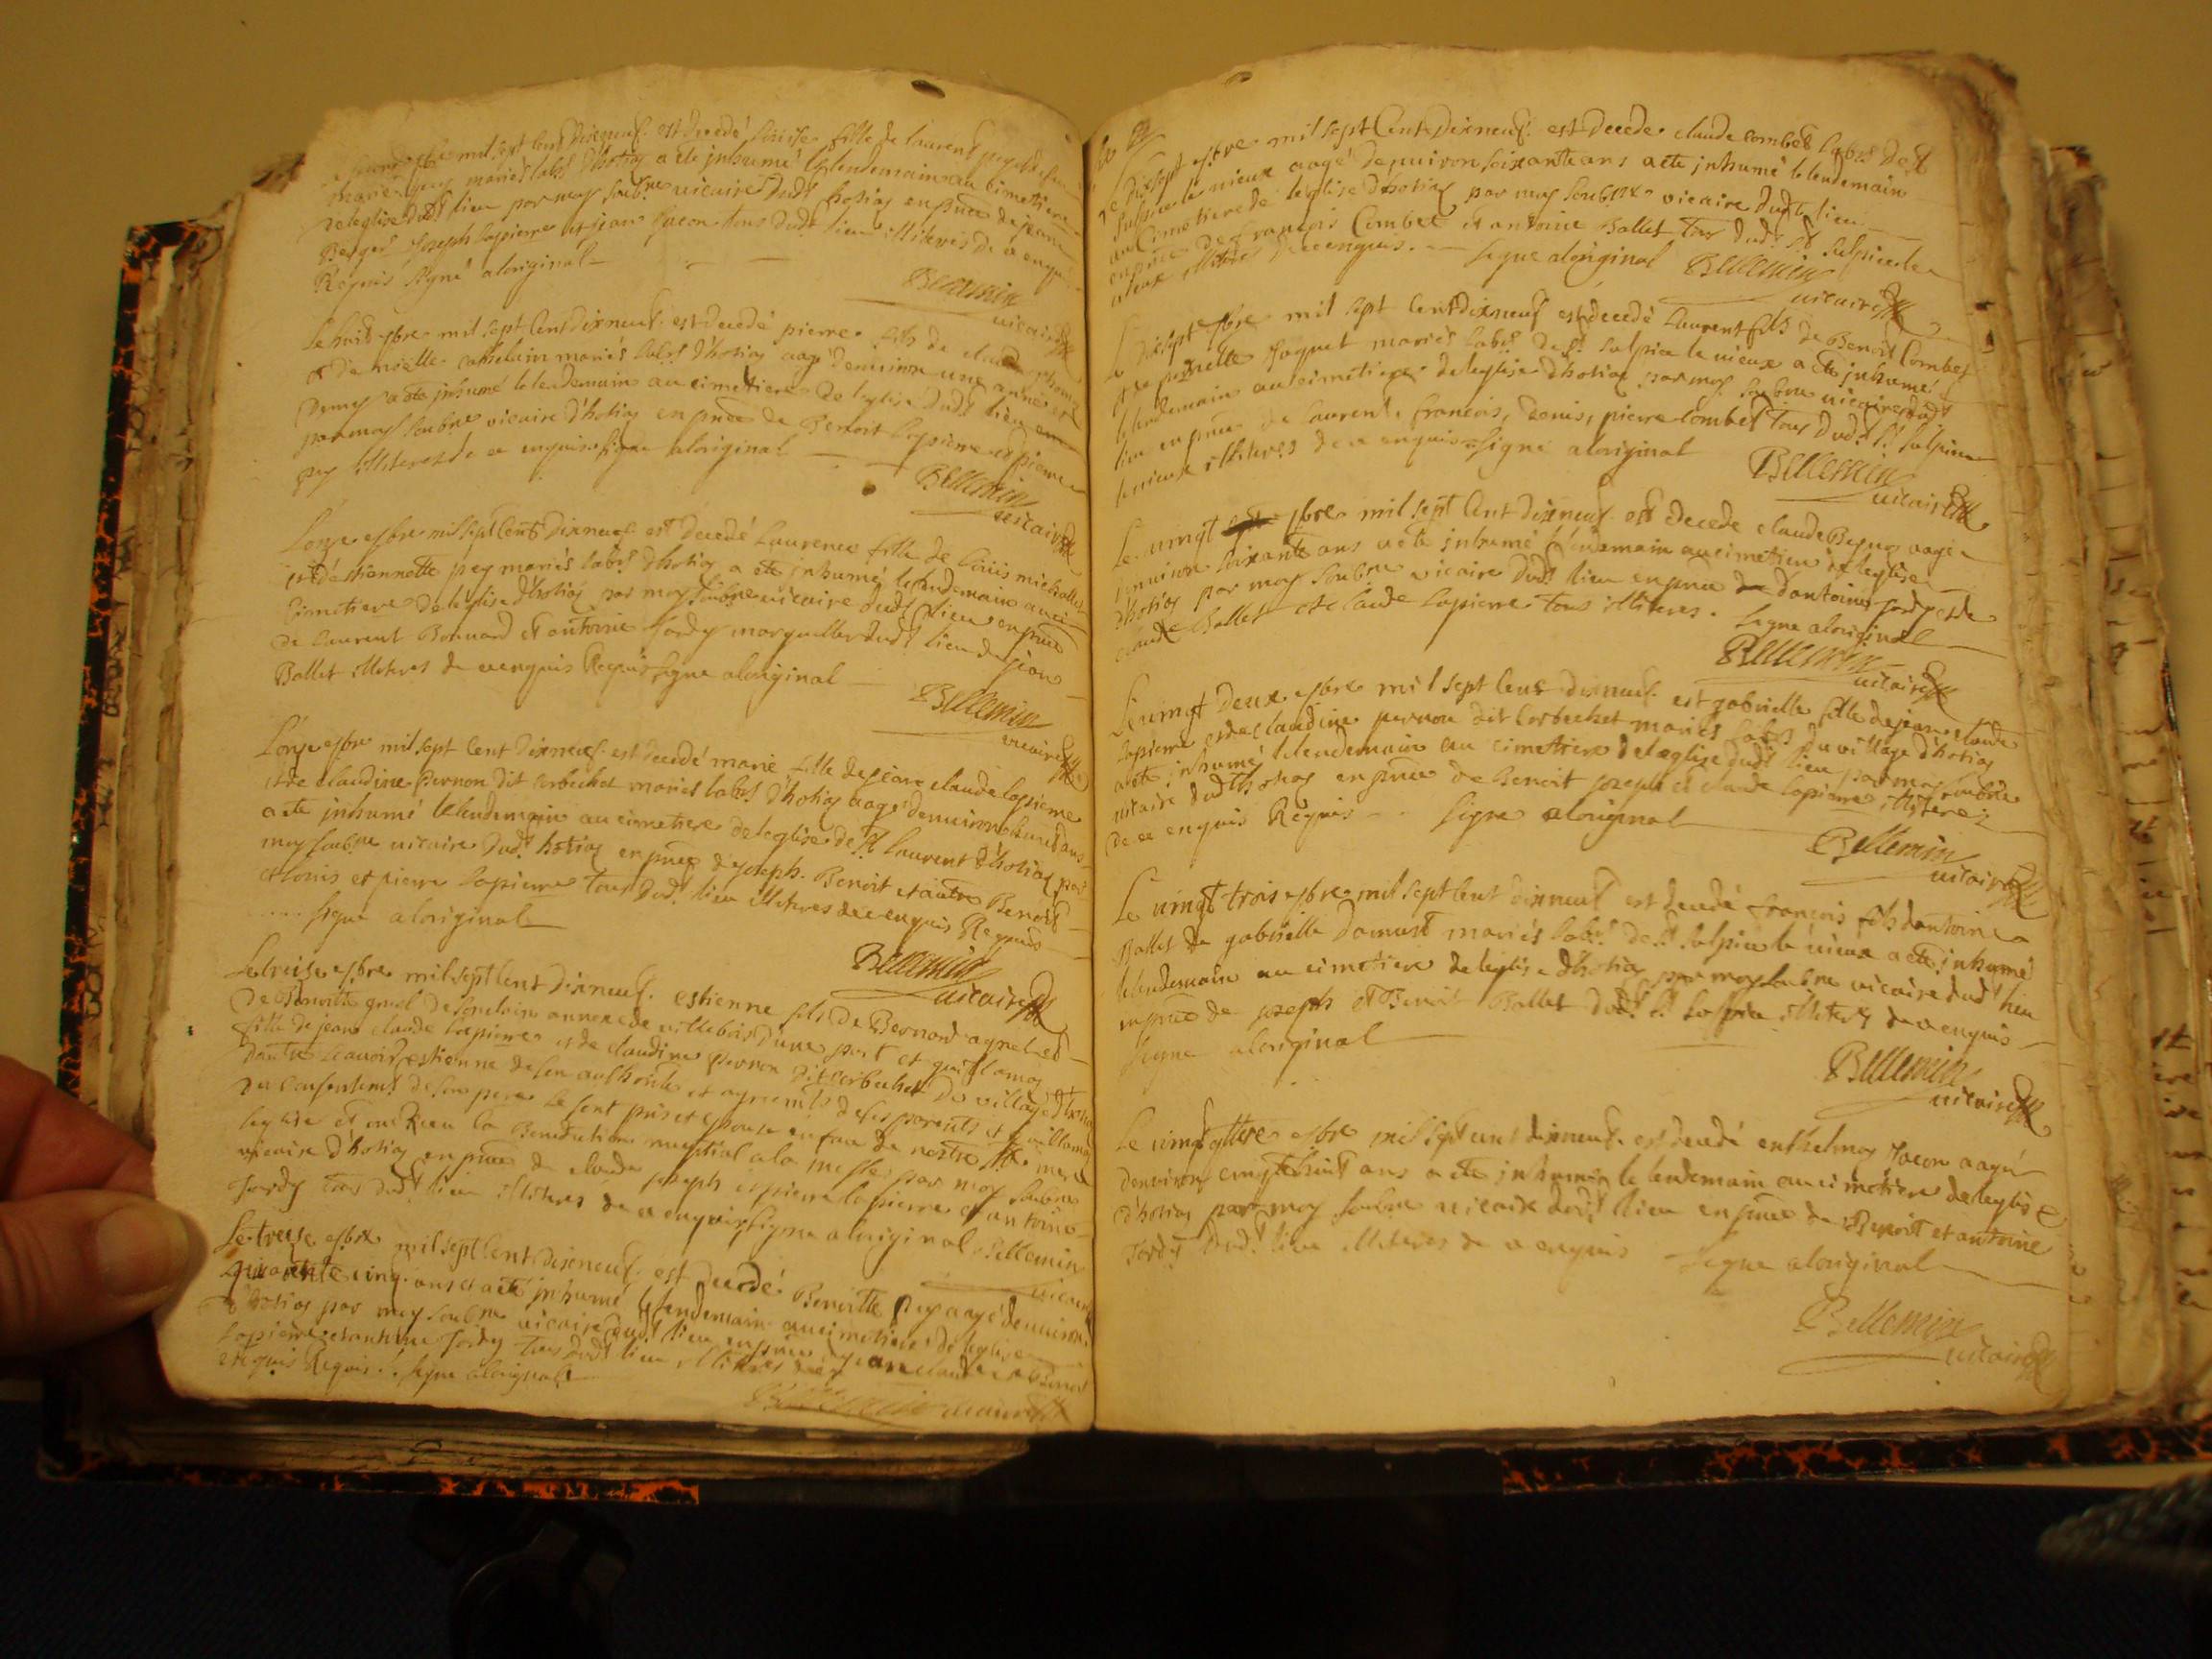 mil sept Cent dixneuf est decedé Louise fille de laurent pey
mariés labrs d'hotiaz a ete inhumé le lendemain au cimetiere
de leglise dudt lieu par moy soubne vicaire dudt hotiaz en pnce de jean
Berger Joseph lapierre et jean Jacon tous dudt lieu illiterés de ce enquis
Requis signé a loriginal
Bellemin
vicaire
Le huid 9bre mil sept Cent dixneuf est decedé pierre fils de claude
et de mariés labrs d'hotiaz aagé denviron une année et
demy a ete inhumé le lendemain au cimetiere de leglise dudt lieu
par moy soubne vicaire d'hotiaz en pnce de Benoit lapierre et pierre
pey illiterés de ce enquis signé a loriginal
Bellemin
vicaire
L'onze 9bre mil sept Cent dixneuf est decedé Laurence fille de Louis michollet
et d'estiennette pey mariés labrs d'hotiaz a ete inhumé le lendemain au
Cimetiere de leglise d'hotiaz par moy soubne vicaire dudt lieu en pnce
de laurent Bonnard et antoine Jordy marguiller dudt lieu de jean
Ballet illiteres de ce enquis Requis signe a loriginal
Bellemin
vicaire
L'onze 9bre mil sept Cent dixneuf est decedé marie fille de jean claude lapierre
et de claudine pernon dit Corbechet mariés labrs d'hotiaz aagé denviron huid ans
a ete inhumé le lendemain au cimetiere de leglise de st laurent d'hotiaz par
moy soubne vicaire dudt hotiaz en pnce de joseph Benoit et autre Benoit
et louis et pierre lapierre tous dudt lieu illiteres de ce enquis Requis
signe a loriginal
Bellemin
vicaire
Le treise 9bre mil sept Cent dixneuf estienne fils de Bernard
de Benoitte annexe de villebois d'une part et guillamaz
fille de jean claude lapierre et de claudine pernon dit Corbechet du village d'hotiaz
dautre scavoir estienne de son authorité et agreemts de ses parents et guillamaz
du consentemt de son pere se sont pris et epouse en face de nostre ste mere
leglise et ont Receu la Benediction nuptial a la messe par moy soubne
vicaire d'hotiaz en pnce de claude joseph et pierre lapierre et antoine
Jordy tous dudt lieu illiteres de ce enquis signe a loriginal Bellemin
vicaire
Le treize 9bre mil sept Cent dixneuf est decedé Benoitte pey aagé denviron
quarante cinq ans et a ete inhumé le lendemain au cimetiere de leglise
d'hotiaz par moy soubne vicaire dudt lieu en pnce de jean claude et Benoit
lapierre et antoine Jordy tous dudt lieu illiteres de ce
enquis Requis signe a loriginal
Bellemin vicaire
Le dixsept 9bre mil sept Cent Dixneuf est decede claude combet labrs de st
sulpice le vieux aagé denviron soixante ans a ete inhumé le lendemain
au Cimetiere de leglise d'hotiaz par moy soubne vicaire dudt lieu
en pnce de francois Combet et antoine Ballet tous dudt st sulpice le
vieux illiteres de ce enquis signe a loriginal
Bellemin
vicaire
Le dixsept 9bre mil sept Cent dixneuf est decedé Laurent fils de Benoit Combet
et de Jaquet mariés labrs de st sulpice le vieux a ete inhumé
le lendemain au cimetiere de leglise d'hotiaz par moy soubne vicaire dudt
lieu en pnce de laurent, francois, denis, pierre Combet tous dudt st sulpice
le vieux illiteres de ce enquis signé a loriginal
Bellemin
vicaire
Le vingt 9bre mil sept Cent dixneuf est decede claude aagé
denviron soixante ans a ete inhumé le lendemain au cimetiere de leglise
d'hotiaz par moy soubne vicaire dudt lieu en pnce dantoine Jordy et de
claude Ballet et claude lapierre tous illiteres. signe a loriginal
Bellemin
vicaire
Le vingt deux 9bre mil sept Cent dixneuf est gabrielle fille de jean claude
lapierre et de claudine pernon dit Corbechet mariés labrs du village d'hotiaz
a ete inhumé le lendemain au cimetiere de leglise dudt lieu par moy soubne
vicaire dudt hotiaz en pnce de Benoit joseph et claude lapierre illiteres
de ce enquis Requis signe a loriginal
Bellemin
vicaire
Le vingt trois 9bre mil sept Cent dixneuf est decedé francois fils dantoine
Ballet de gabrielle mariés labrs de st sulpice le vieux a ete inhumé
le lendemain au cimetiere de leglise d'hotiaz par moy soubne vicaire dudt lieu
en pnce de joseph et Benoit Ballet dudt st sulpice illiteres de ce enquis
signe a loriginal
Bellemin
vicaire
Le vingt qttre 9bre mil sept cent dixneuf est decedé enthelmoz Jacon aagé
denviron vingt huit ans a ete inhumé le lendemain au cimetiere de leglise
d'hotiaz par moy soubne vicaire dudt lieu en pnce de Benoit et antoine
Jordy dudt lieu illiteres de ce enquis signe a loriginal
Bellemin
vicaire